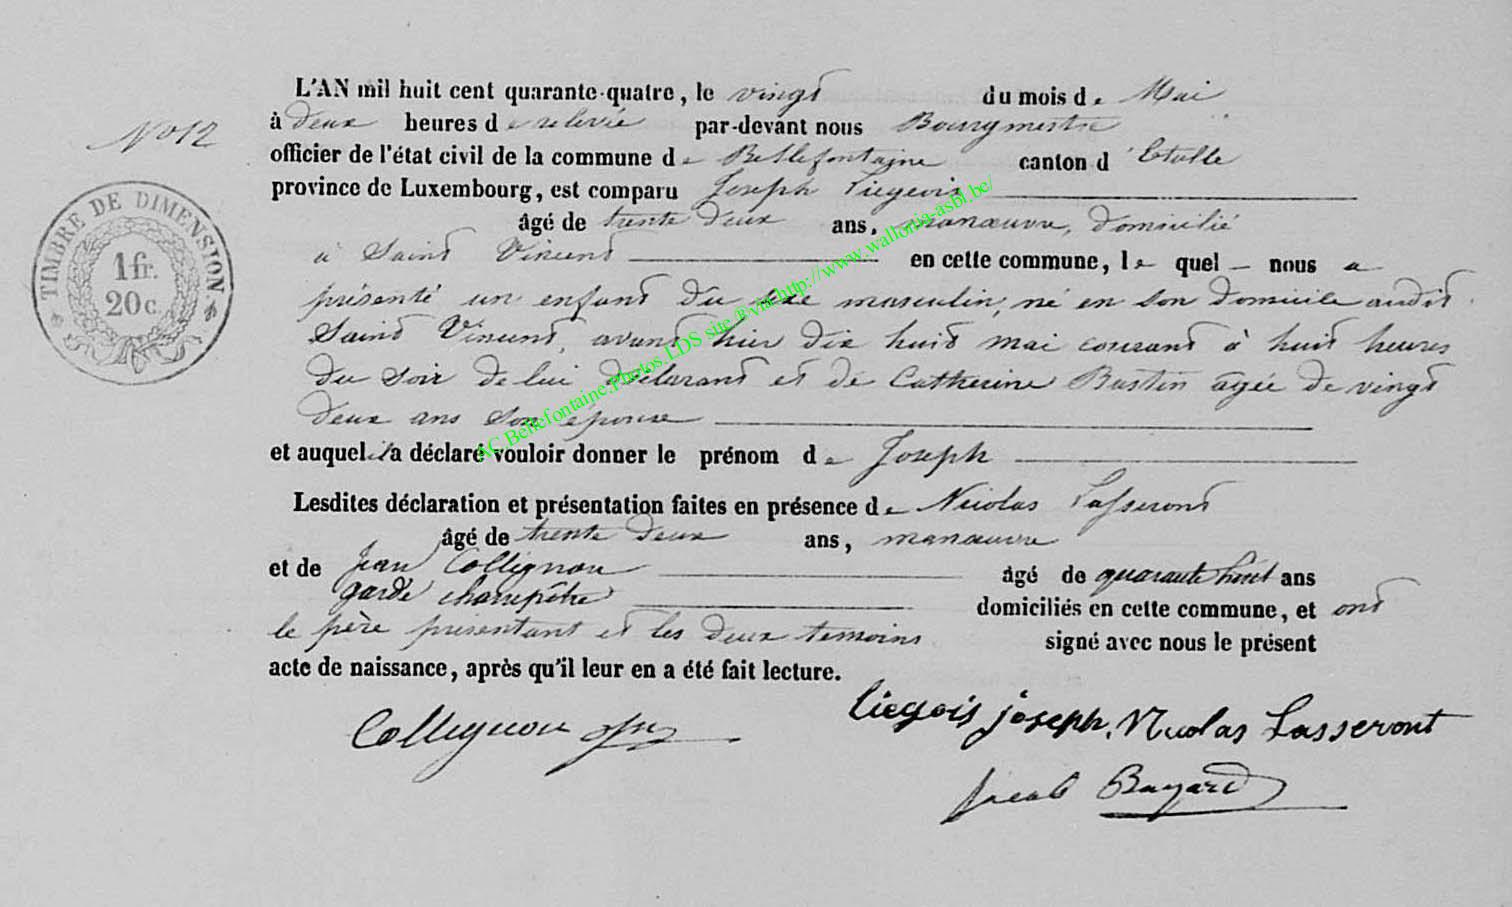 L'AN mil huit cent quarante-quatre, le vingt du mois de Mai
No 12
à deux heures de relevée par-devant nous Bourgmestre
officier de l'état civil de la commune de Bellefontaine canton d'Etalle
province de Luxembourg, est comparu Joseph Liegeois
âgé de trente deux ans, manœuvre, domicilié
à Saint Vincent en cette commune, le quel nous a
présenté un enfant du sexe masculin, né en son domicile audit
Saint Vincent, avant hier dix huit mai courant à huit heures
du soir de lui déclarant et de Catherine Bastin agée de vingt
deux ans son épouse
et auquel il a déclaré vouloir donner le prénom de Joseph
Lesdites déclaration et présentation faites en présence de Nicolas Lasseront
âgé de trente deux ans, manœuvre
et de Jean Collignon âgé de quarante huit ans
garde champêtre domiciliés en cette commune, et ont
le père présentant et les deux temoins signé avec nous le présent
acte de naissance, après qu'il leur en a été fait lecture.
Collignon
Liegois joseph, Nicolas Lasseront
Jacob Bayard
TIMBRE DE DIMENSION
1 fr.
20 c.
AC.Bellefontaine.Photos.LDS site.®via http://www.wallonia-asbl.be/